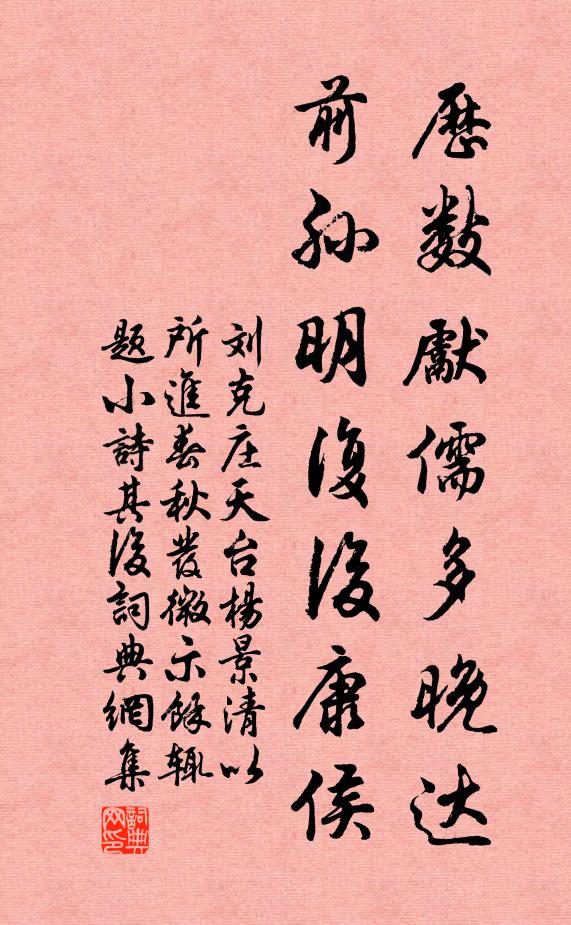 歷数獻儒多晚达
前孙明復後康侯
刘克庄天台楊景清以
所進春秋發微示餘輒
題小詩其後詞典網集
詞典网印